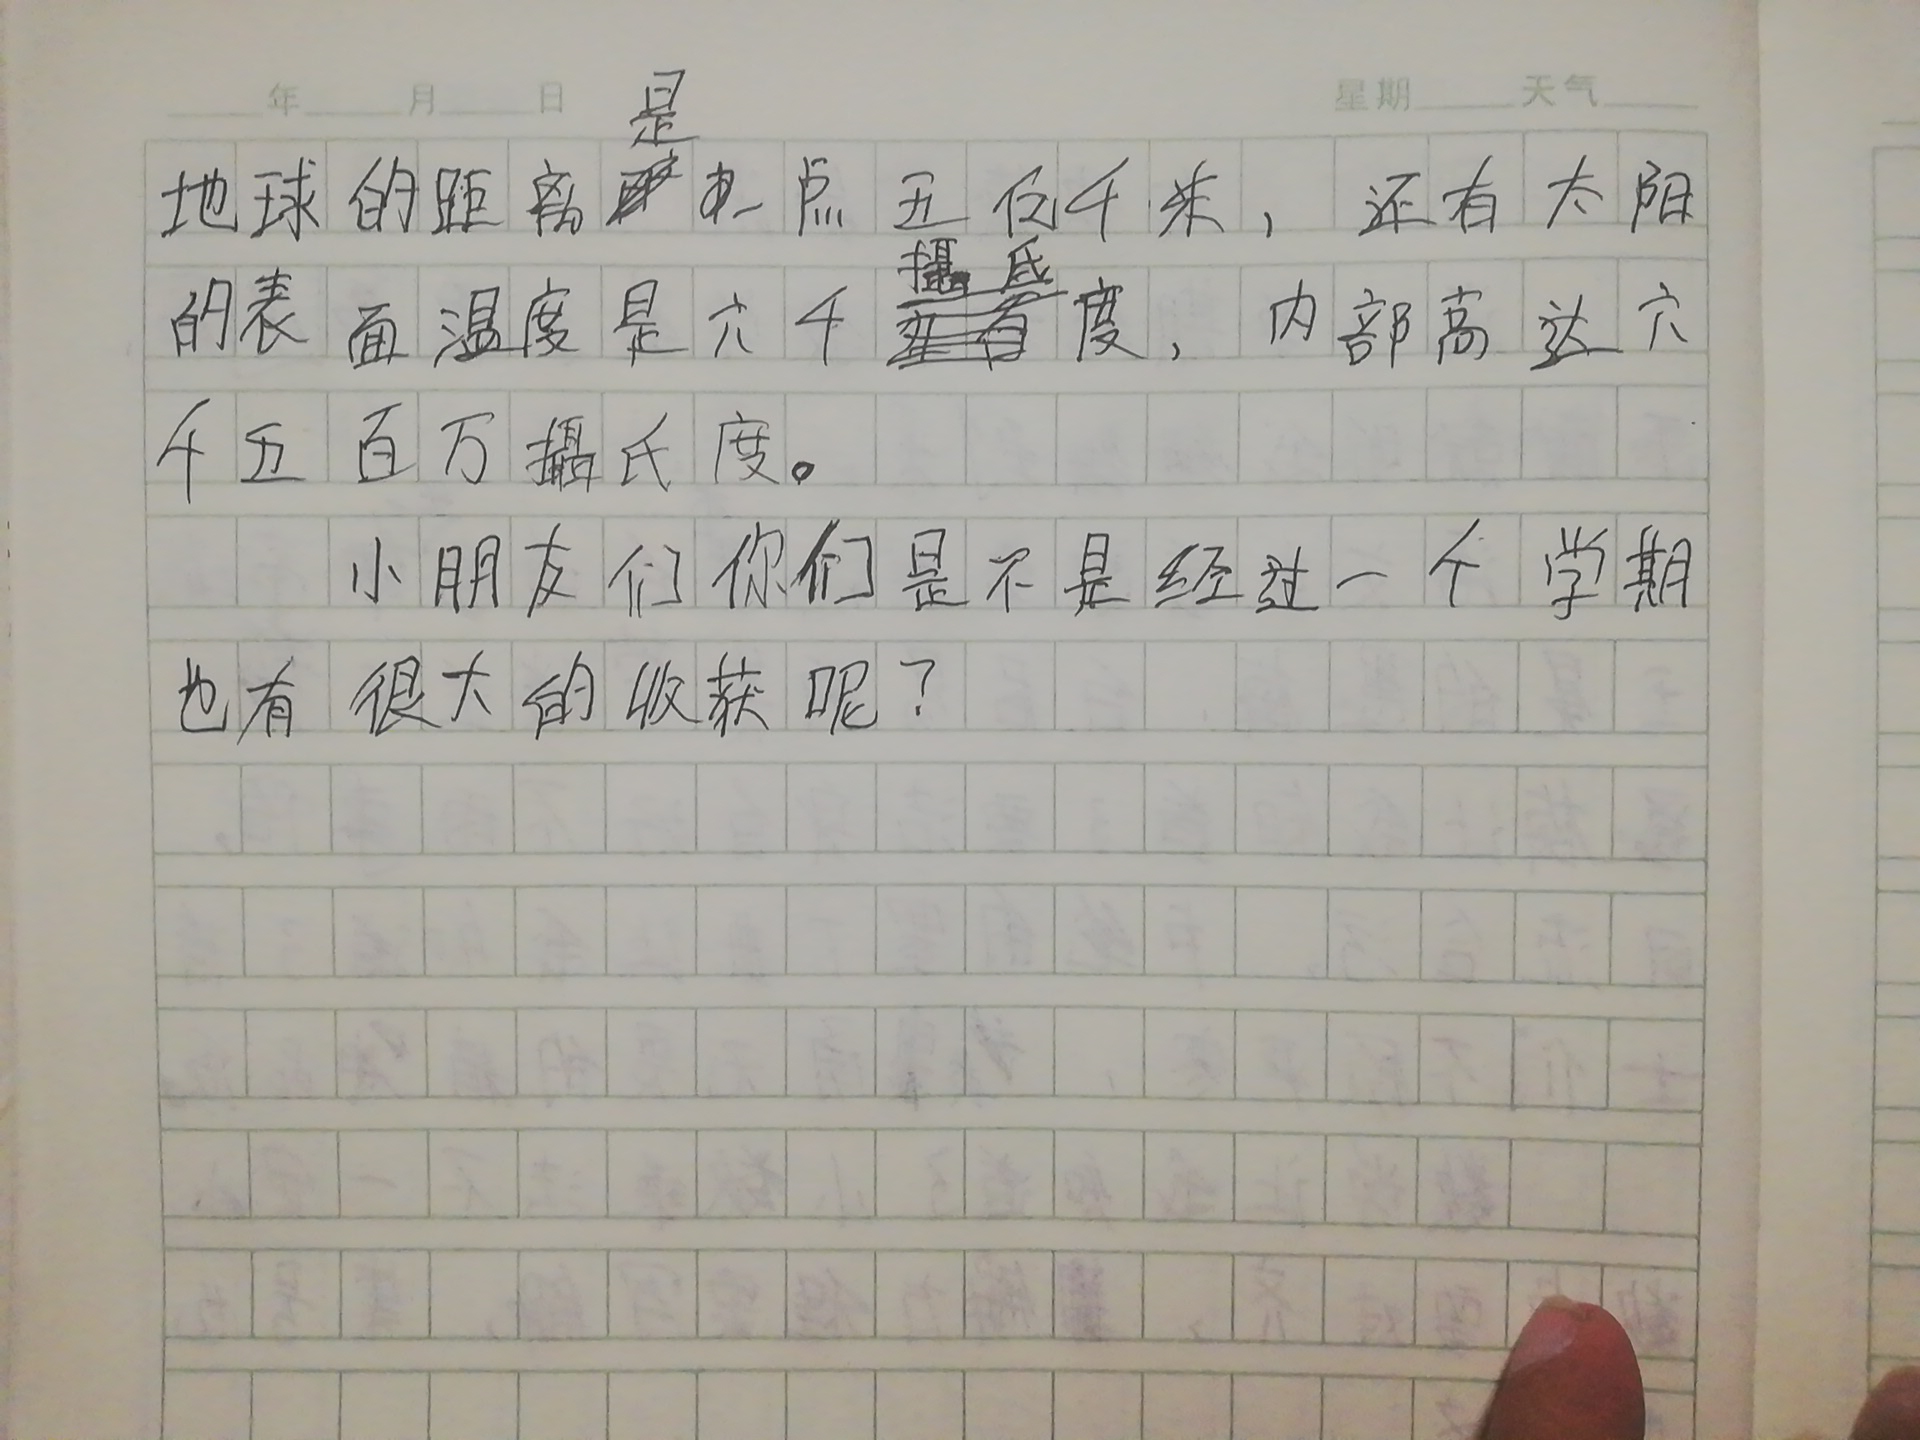 年 月 日 星期 天气
地球的距离是 点五亿千米，还有太阳
的表面温度是六千攝氏度，内部高达六
千五百万攝氏度。
小朋友们你们是不是经过一个学期
也有很大的收获呢？